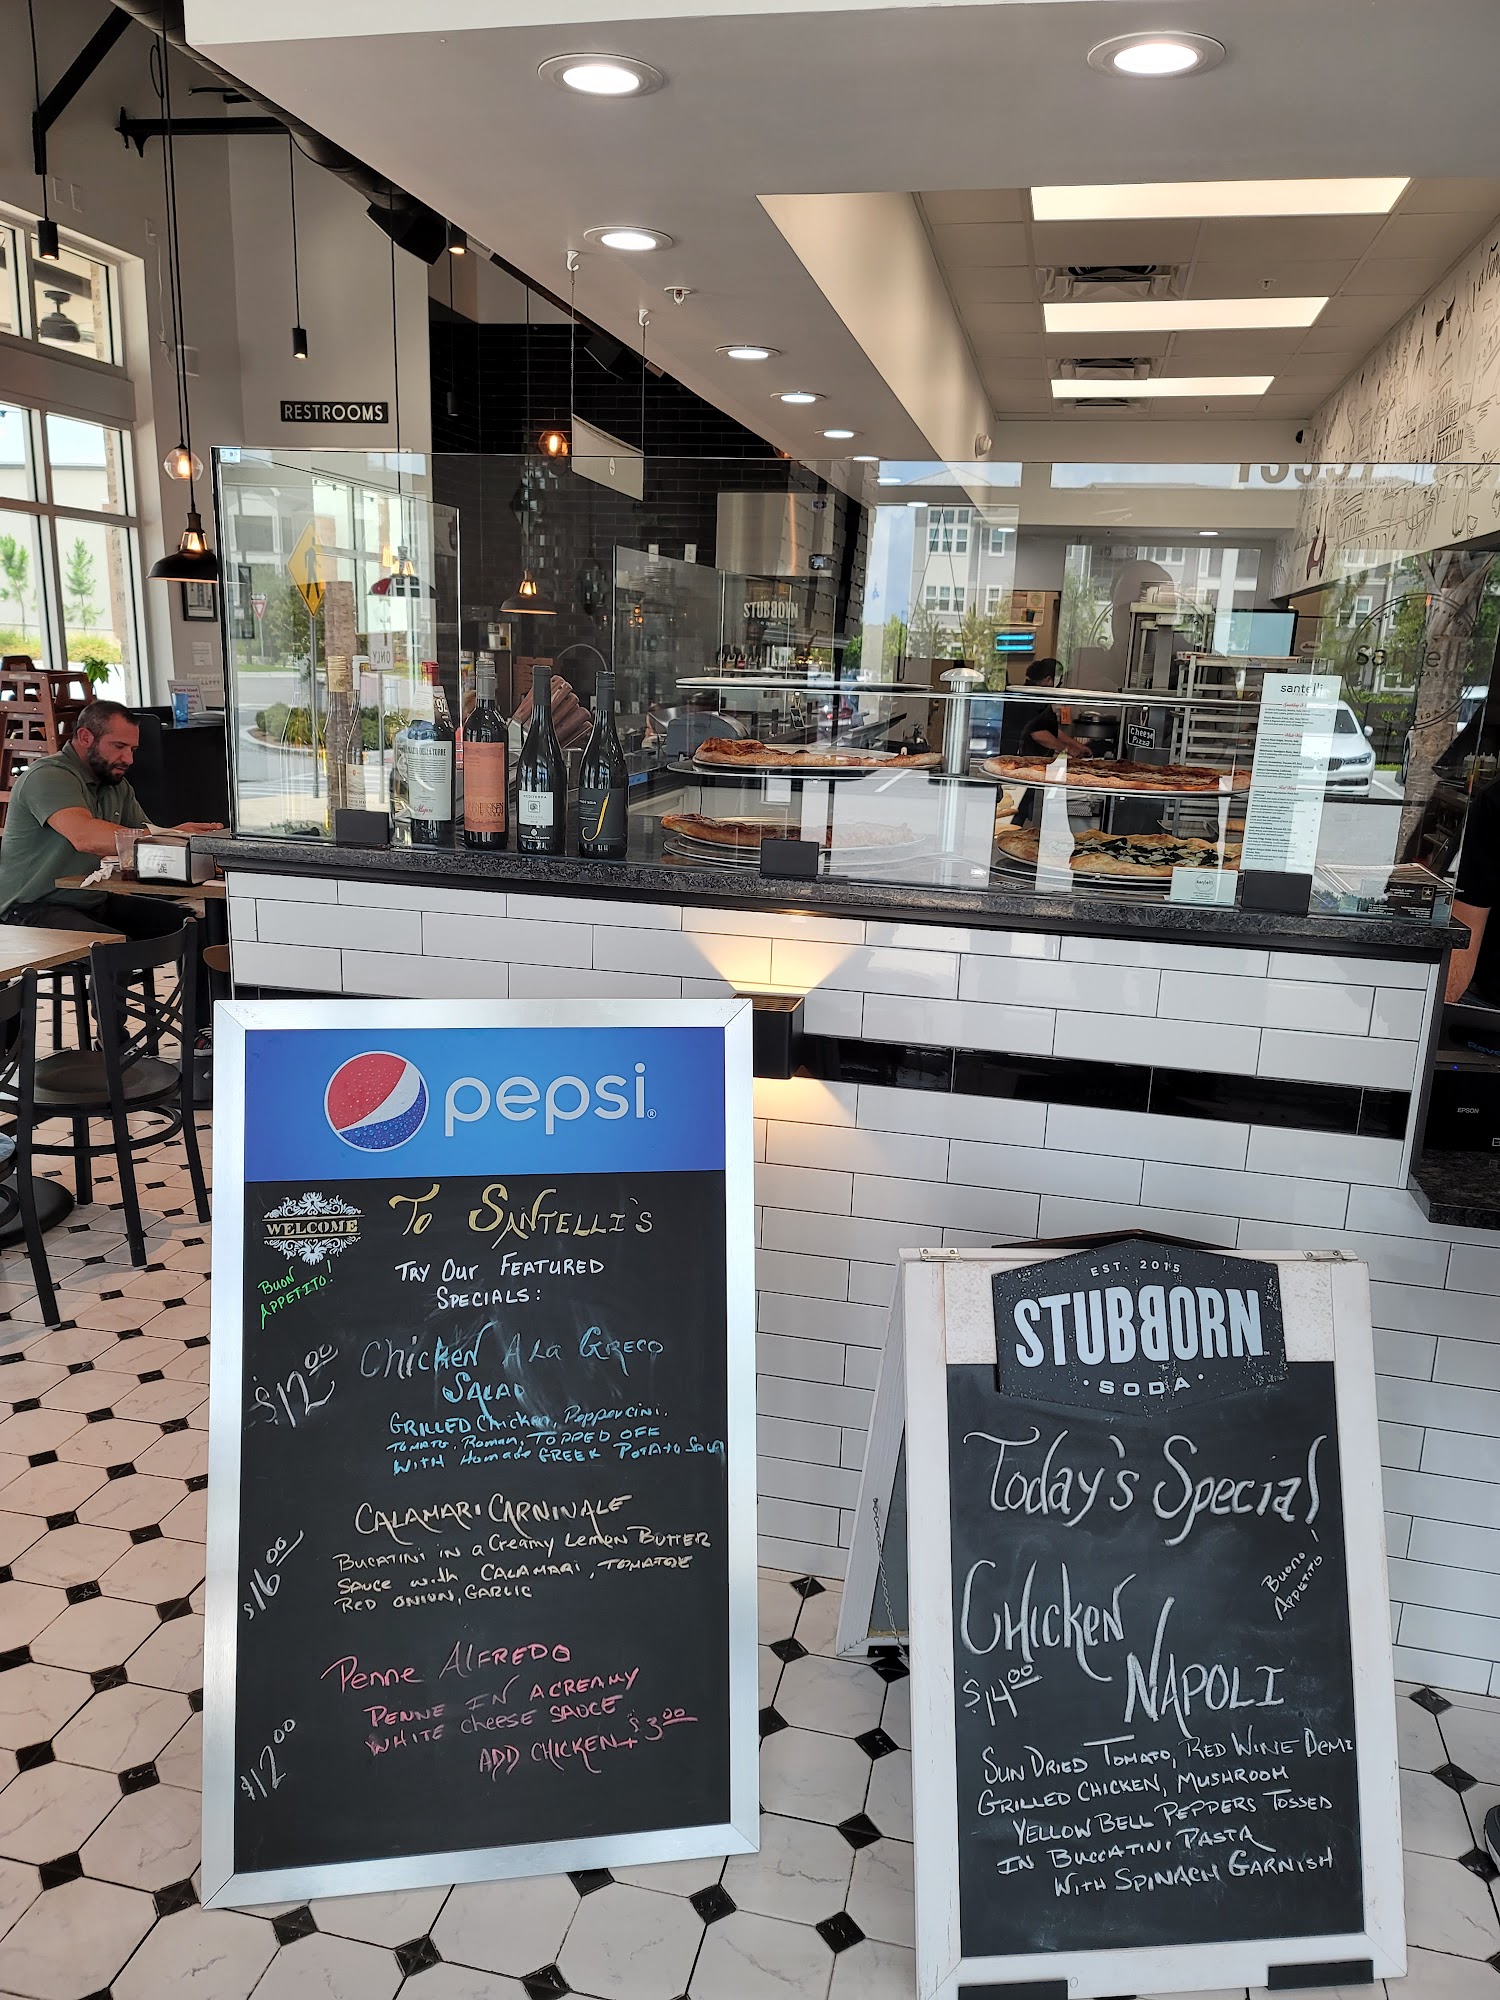 RESTROOMS
STUBBORN
SODA
ONLY
Cheese
Pizza
santelli
EPSON
pepsi
WELCOME
To SANTELLI'S
BUON
APPETITO!
TRY OUR FEATURED
SPECIALS:
$12.00
Chicken A La GRECO
SALAD
GRILLED Chicken, Pepporcini.
TOMATO, Roman, TOPPED OFF
WITH Homade GREEK POTATO SALAD
CALAMARI CARNIVALE
$16.00
BUCATINI IN a Creamy Lemon Butter
SAUCE with CALAMARI, TOMATOE
RED ONION, GARLIC
Penne AlFREDO
PENNE IN A CREAMY
WHITE cheese SAUCE
ADD CHICKEN + $3.00
$12.00
EST. 2015
STUBBORN
SODA
Today's Special
Buono
Appetito!
CHICKEN
NAPOLI
$14.00
SUN DRIED TOMATO, RED WINE DEMI
GRILLED CHICKEN, MUSHROOM
YELLOW BELL PEPPERS TOSSED
IN BUCCATINI PASTA
WITH SPINACH GARNISH